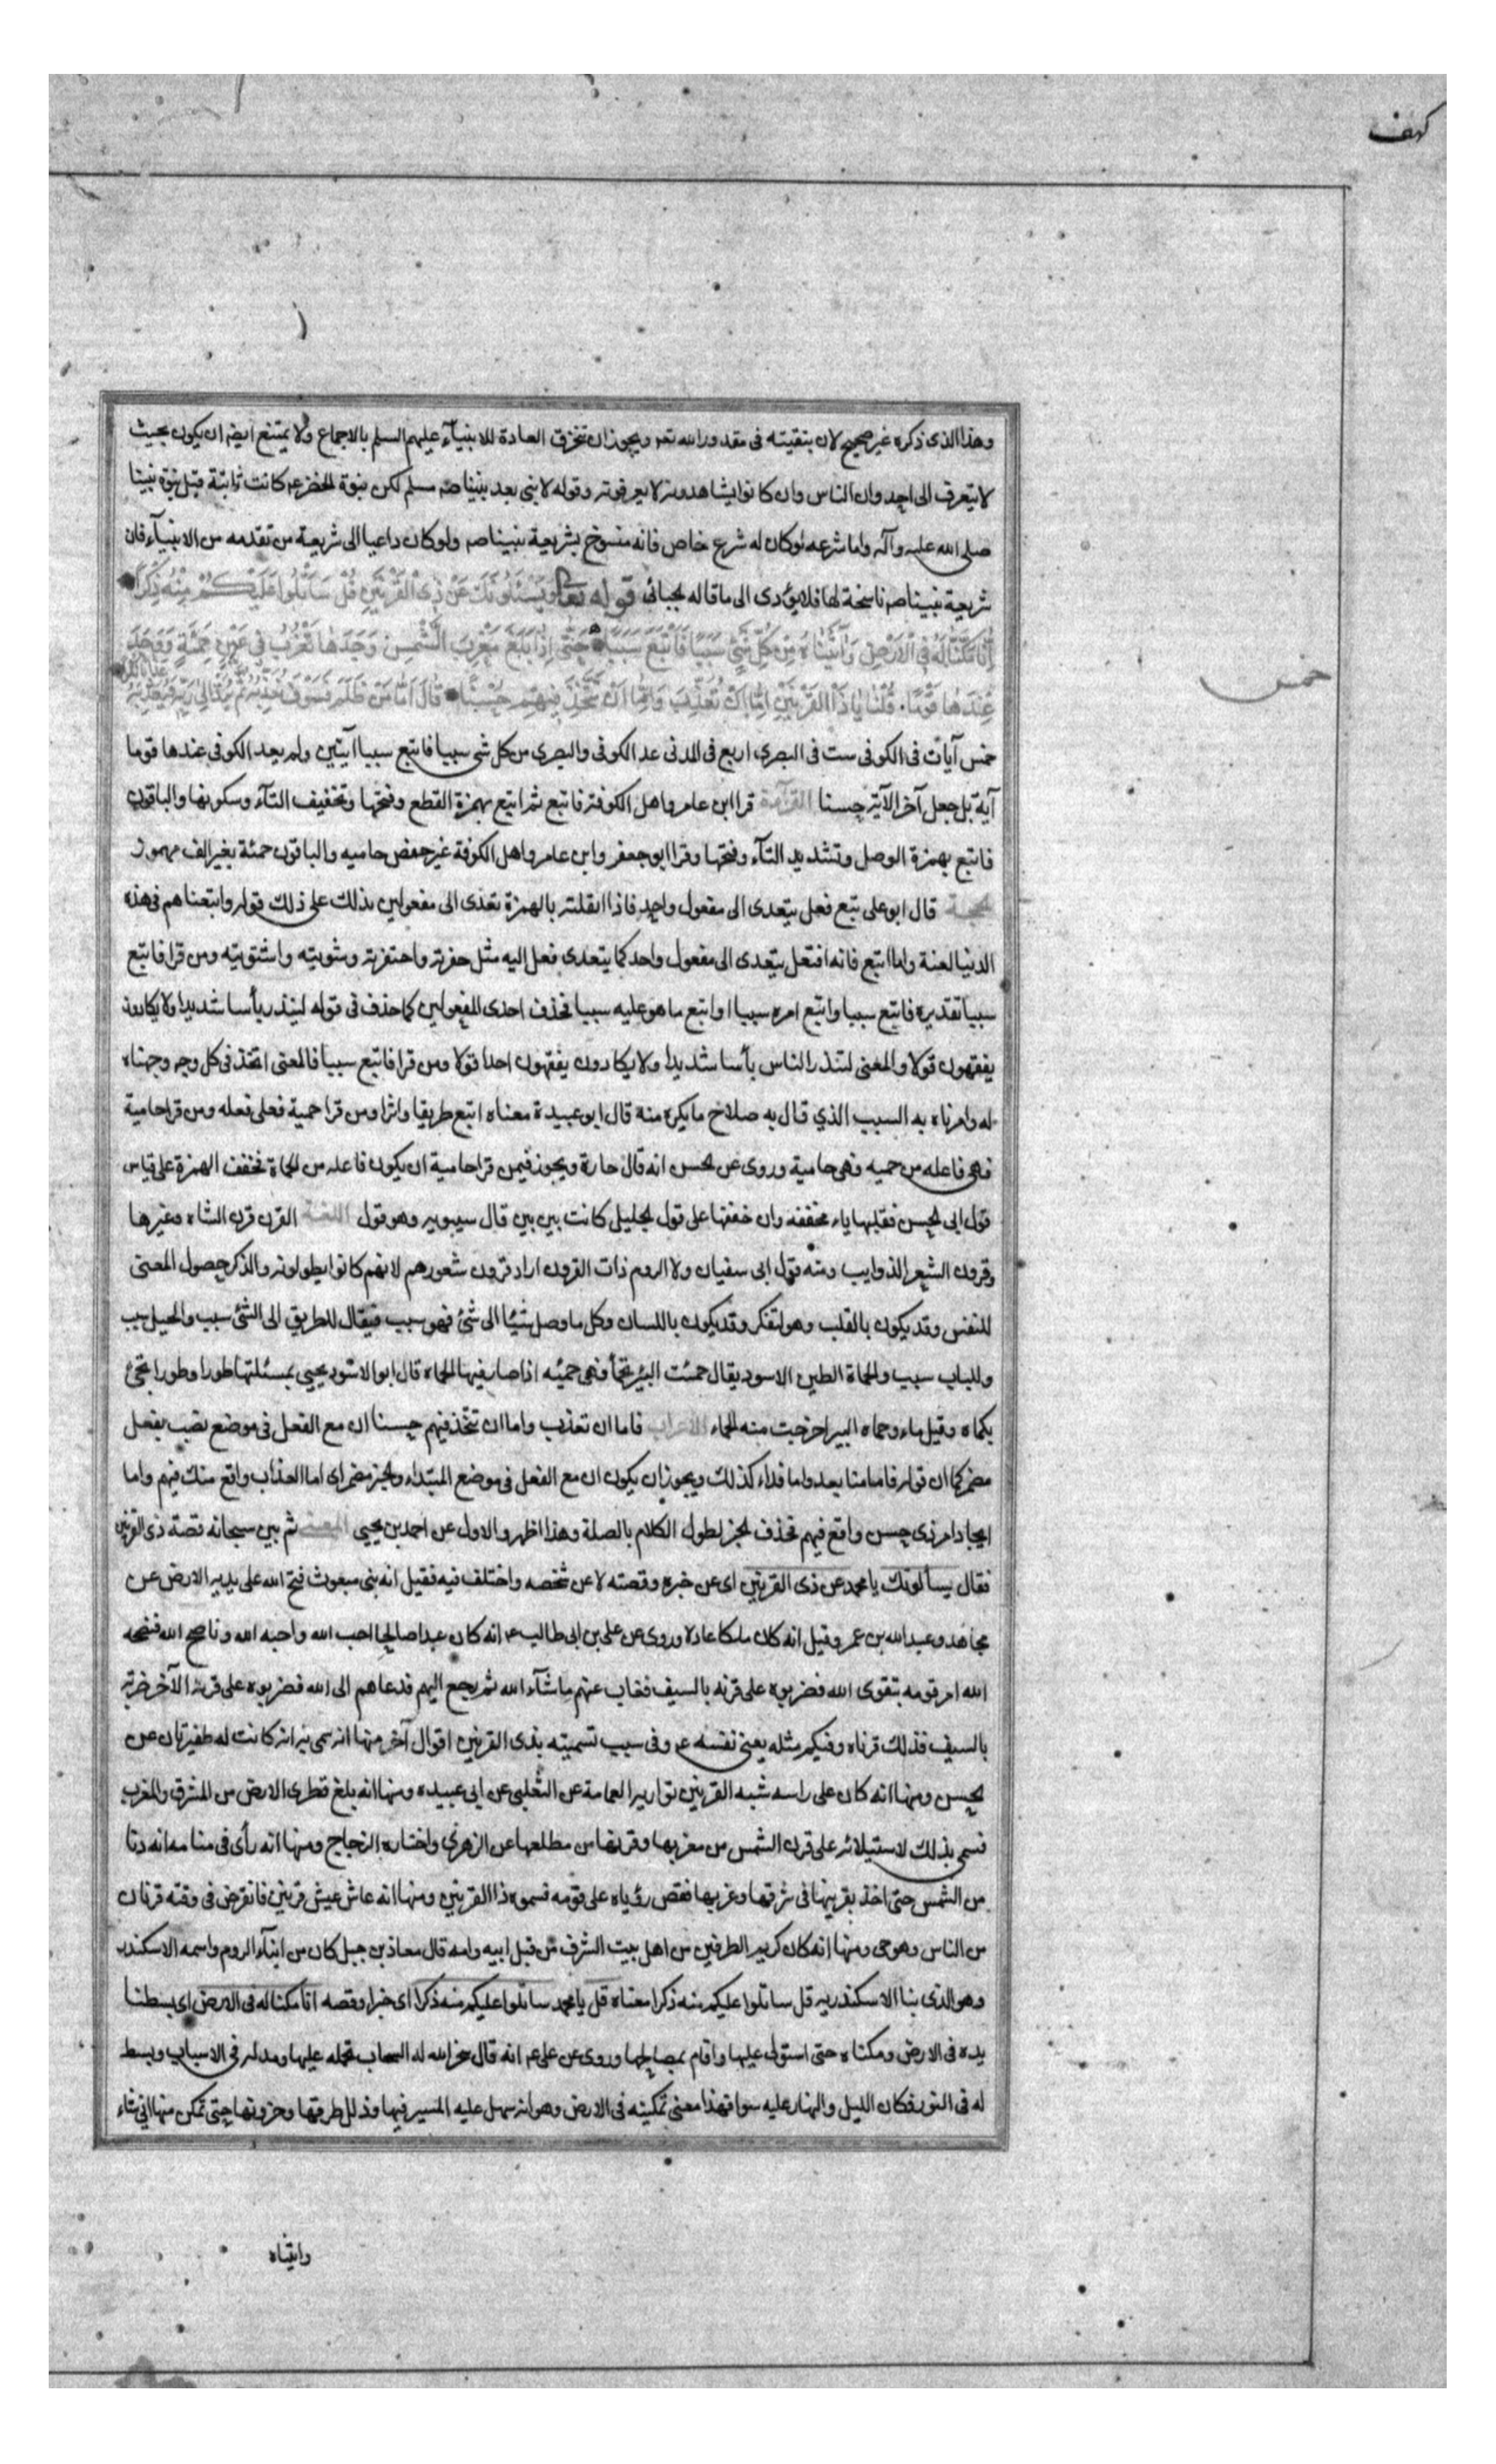 كهف
وهذا الذى ذكره غير صحيح لان تبقيته فى مقدور الله تعـ ويجوز ان تخرق العادة للانبيآء عليهم السلم بالاجماع ولا يمتنع ايضا ان يكون بحيث
لا يتعرف الى احد وان الناس وان كانوا يشاهدونه لا يعرفونه وقوله لا نبى بعد نبينا صم مسلم لكن نبوة الخضر عم كانت ثابتة قبل نبوة نبينا
صلى الله عليه وآله واما شرعه لو كان له شرع خاص فانه منسوخ بشريعة نبينا صم ولو كان داعيا الى شريعة من تقدمه من الانبيآء فان
شريعة نبينا صم ناسخة لها فلا يؤدى الى ما قاله الجبائى قوله تعا وَيَسْئَلُونَكَ عَنْ ذِى الْقَرْنَيْنِ قُلْ سَاَتْلُوا عَلَيْكُمْ مِنْهُ ذِكْرًا
اِنَّا مَكَّنَّا لَهُ فِى الْاَرْضِ وَآتَيْنَاهُ مِنْ كُلِّ شَىْءٍ سَبَبًا فَاَتْبَعَ سَبَبًا حَتَّى اِذَا بَلَغَ مَغْرِبَ الشَّمْسِ وَجَدَهَا تَغْرُبُ فِى عَيْنٍ حَمِئَةٍ وَوَجَدَ
عِنْدَهَا قَوْمًا قُلْنَا يَا ذَا الْقَرْنَيْنِ اِمَّا اَنْ تُعَذِّبَ وَاِمَّا اَنْ تَتَّخِذَ فِيهِمْ حُسْنًا قَالَ اَمَّا مَنْ ظَلَمَ فَسَوْفَ نُعَذِّبُهُ ثُمَّ يُرَدُّ اِلَى رَبِّهِ فَيُعَذِّبُهُ
خمس
خمس آيات فى الكوفى ست فى البصرى اربع فى المدنى عد الكوفى والبصرى من كل شى سببا فاتبع سببا آيتين ولم يعد الكوفى عندها قوما
آية بل جعل آخر الآية حسنا القرآءة قرا ابن عامر واهل الكوفة فاتبع ثم اتبع بهمزة القطع وفتحها وتخفيف التآء وسكونها والباقون
فاتبع بهمزة الوصل وتشديد التآء وفتحها وقرا ابو جعفر وابن عامر واهل الكوفة غير حفص حاميه والباقون حمئة بغير الف مهموز
الحجة قال ابو على تبع فعل يتعدى الى مفعول واحد فاذا انقلته بالهمزة تعدى الى مفعولين يدلك على ذلك قوله واتبعناهم فى هذه
الدنيا لعنة واما اتبع فانه افتعل يتعدى الى مفعول واحد كما يتعدى فعل اليه مثل حفرته واحتفرته وشويته واشتويته ومن قرا فاتبع
سببا تقديره فاتبع سببا واتبع امره سببا او اتبع ما هو عليه سببا فحذف احدى المفعولين كما حذف فى قوله لينذر بأسا شديدا ولا يكادون
يفقهون قولا والمعنى لتنذر الناس بأسا شديدا ولا يكادون يفقهون احدا قولا ومن قرا فاتبع سببا فالمعنى اتخذ فى كل وجه وجهناه
له وامرناه به السبب الذي قال به صلاح ما يكره منه قال ابو عبيدة معناه اتبع طريقا واثرا ومن قرا حمية فعلى فعله ومن قرا حامية
فهى فاعله من حميه فهى حامية وروى عن الحسن انه قال حارة ويجوز فيمن قرا حامية ان يكون فاعله من الحماة فخفف الهمزة على قياس
قول ابى الحسن فقلبها ياء محففه وان خففها على قول الخليل كانت بين بين قال سيبويه وهو قول اللغة القرن قرن الشاه وغيرها
وقرون الشعر الذوايب ومنه قول ابى سفيان ولا الروم ذات القرون اراد قرون شعورهم لانهم كانوا يطولونه والذكر حصول المعنى
للنفس وقد يكون بالقلب وهو التفكر وقد يكون باللسان وكل ما وصل شيئا الى شئ فهو سبب فيقال للطريق الى الشئ سبب والحبل سبب
وللباب سبب والحماة الطين الاسود يقال حمئت البئر تحمأ فهى حمئه اذا صار فيها الحماه قال ابو الاسود يحيى بمسئلتها طورا وطورا تجئ
بكماه وقيل ماء وحماه البير اخرجت منه الحماء الاعراب فاما ان تعذب واما ان تتخذ فيهم حسنا ان مع الفعل فى موضع نصب بفعل
مضمر كما ان قوله فاما منا بعد واما فداء كذلك ويجوز ان يكون ان مع الفعل فى موضع المبتداء والخبر مضمر اى اما العذاب واقع منك فيهم واما
ايجاد امر ذى حسن واقع فيهم فحذف الخبر لطول الكلام بالصلة وهذا اظهر والاول عن احمد بن يحيى المعنى ثم بين سبحانه قصة ذى القرنين
فقال يسألونك يا محمد عن ذى القرنين اى عن خبره وقصته لا عن شخصه واختلف فيه فقيل انه نبى مبعوث فتح الله على يديه الارض عن
مجاهد وعبد الله بن عمر وقيل انه كان ملكا عادلا وروى عن على بن ابى طالب عم انه كان عبدا صالحا احب الله واحبه الله وناصح الله فنصحه
الله امر قومه بتقوى الله فضربوه على قرنه بالسيف فغاب عنهم ما شآء الله ثم رجع اليهم فدعاهم الى الله فضربوه على قرنه الآخر ضربة
بالسيف فذلك قرناه وفيكم مثله يعنى نفسه عم وفى سبب تسميته بذى القرنين اقوال آخر منها انه سمى به انه كانت له ظفيرتان عن
الحسن ومنها انه كان على راسه شبه القرنين تواريه العمامة عن الثعلبى عن ابى عبيده ومنها انه بلغ قطرى الارض من المشرق والمغرب
فسمى بذلك لاستيلائه على قرن الشمس من مغربها وقرنها من مطلعها عن الزهرى واختاره الزجاج ومنها انه رأى فى منامه انه دنا
من الشمس حتى اخذ بقرنيها فى شرقها وغربها فقص رؤياه على قومه فسموه ذا القرنين ومنها انه عاش عيش قرنين فانقرض فى وقته قرنان
من الناس وهو حى ومنها انه كان كريم الطرفين من اهل بيت الشرف من قبل ابيه وامه قال معاذ بن جبل كان من ابنآء الروم واسمه الاسكندر
وهو الذى بنا الاسكندريه قل ساتلوا عليكم منه ذكرا معناه قل يا محمد ساتلوا عليكم منه ذكرا اى خبرا وقصه انا مكنا له فى الارض اى بسطنا
يده فى الارض ومكناه حتى استولى عليها واقام بمصالحها وروى عن على عم انه قال سخر الله له السحاب فحمله عليها ومد له فى الاسباب وبسط
له فى النور فكان الليل والنهار عليه سوا فهذا معنى تمكينه فى الارض وهو انه سهل عليه المسير فيها وذلل طرقها وحزونها حتى تمكن منها انى شاء
واتيناه